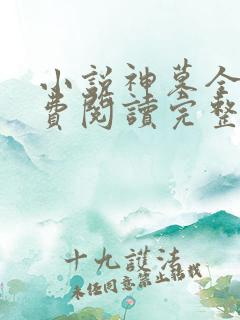 小說神墓全
費閱讀完整
十九護法
未經同意禁止轉載